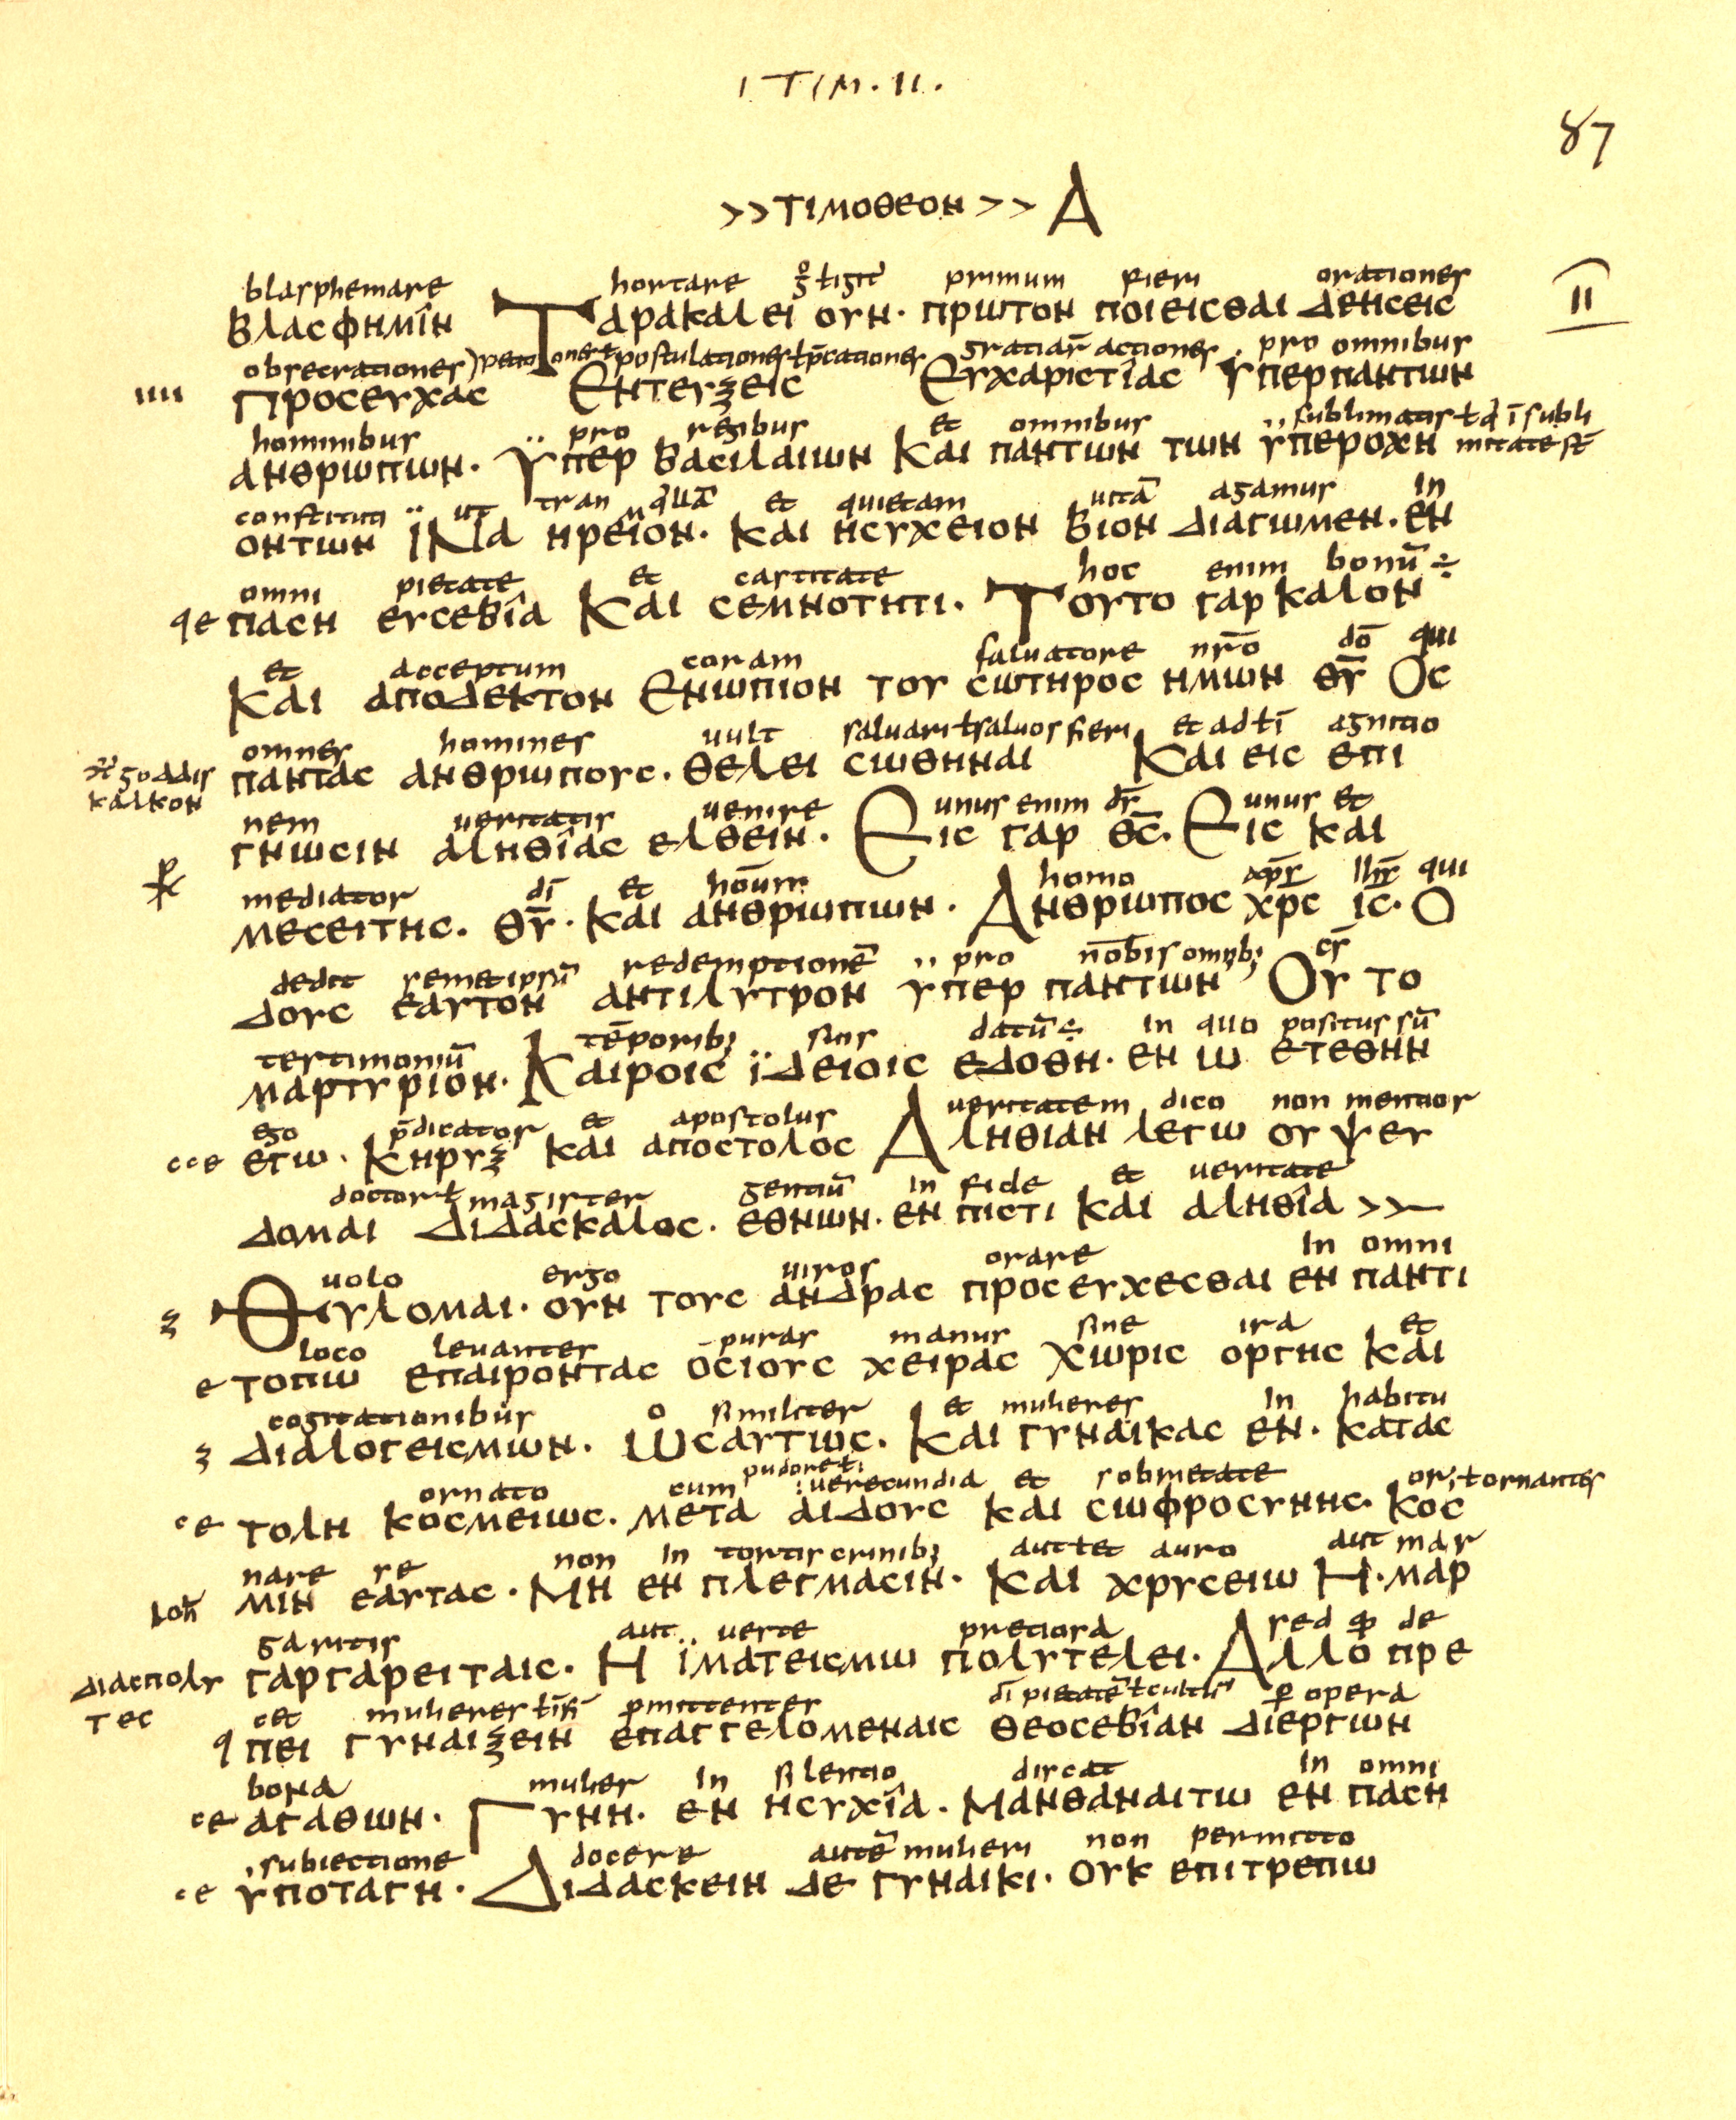 I TIM. II.
87
>>ΤΙΜΟΘΕΟΝ>> Α
blasphemare hortare primum fieri orationes
βλασφημιν Ταρακαλει ουν· πρωτον ποιεισθαι Δεησεις II
obsecrationes postulationes gratiar̄ actiones pro omnibus
IIII Προσευχας Εντευξεις Ευχαριστιας Υπερπαντων
hominibus pro regibus et omnibus
ανθρωπων· Υπερ βασιλαιων Και παντων των ϋπεροχη
constituti ut tran quillā et quietam uitā agamus in
οντων ϊΝα ηρειον· και ησυχειον βιον διαγωμεν· εν
omni pietate et castitate hoc enim bonū ÷
qe παση ευσεβια Και σεμνοτητι· Τουτο γαρ καλον
et acceptum coram saluatore nr̄o dō qui
Και αποδεκτον Ενωπιον του σωτηρος ημων θ̅υ̅ Ος
omnes homines uult saluari ł saluos fieri et ad ł ī agnitio
παντας ανθρωπους· θελει σωθηναι Και εις επι
goddis
καλκον
nem ueritatis uenire unus enim ds̄ unus et
γνωσιν αληθιας ελθειν· Εις γαρ θ̅ς̅· Εις και
mediator dī et hōum homo xp̄s ihs̄ qui
μεσειτης· θ̅υ̅· και ανθρωπων· Ανθρωπος χρς ις· Ο
dedit semetipsū redemptionē pro nobis omnib;
δους εαυτον αντιλυτρον ϋπερ παντων Ου το
testimoniū tēporib; suis datū ÷ in quo positus sū
μαρτυριον· Καιροις ϊδειοις εδοθη· εν ω ετεθην
ego p̄dicator et apostolus ueritatem dico non mentior
cce εγω· κηρυξ και αποστολος Αληθιαν λεγω ου ψευ
doctor ł magister gentiū in fide et ueritate
δομαι Διδασκαλος· εθνων· εν πιστι και αληθια >>
uolo ergo uiros orare in omni
ουλομαι· ουν τους ανδρας προσευχεσθαι εν παντι
loco leuantes puras manus sine ira et
e τοπω επαιροντας οσιους χειρας χωρις οργης και
cogitationibus o similiter et mulieres in habitu
διαλογεισμων· Ωσαυτως· Και γυναικας εν· κατας
ornato cum pudore ł uerecundia et sobrietate
ce τολη κοσμειως· μετα αιδους και σωφροσυνης· κος
nare se non in tortis crinib; aut ł et auro aut mar
μιν εαυτας· Μη εν πλεγμασιν· Και χρυσειω Η· μαρ
garitis aut ueste pretiosa sed de
γαργαρειταις· Η ϊματεισμω πολυτελει· Αλλο πρε
διαςπολυ
τες
cet mulieres dī pietatē opera
πει γυναιξειν επαγγελομεναις θεοσεβιαν διεργων
bona mulier in silentio discat in omni
ce αγαθων· Γυνη· εν ησυχια· Μανθαναιτω εν παση
subiectione docere autē mulieri non permitto
ce υποταγη· Διδασκειν δε γυναικι· ουκ επιτρεπω